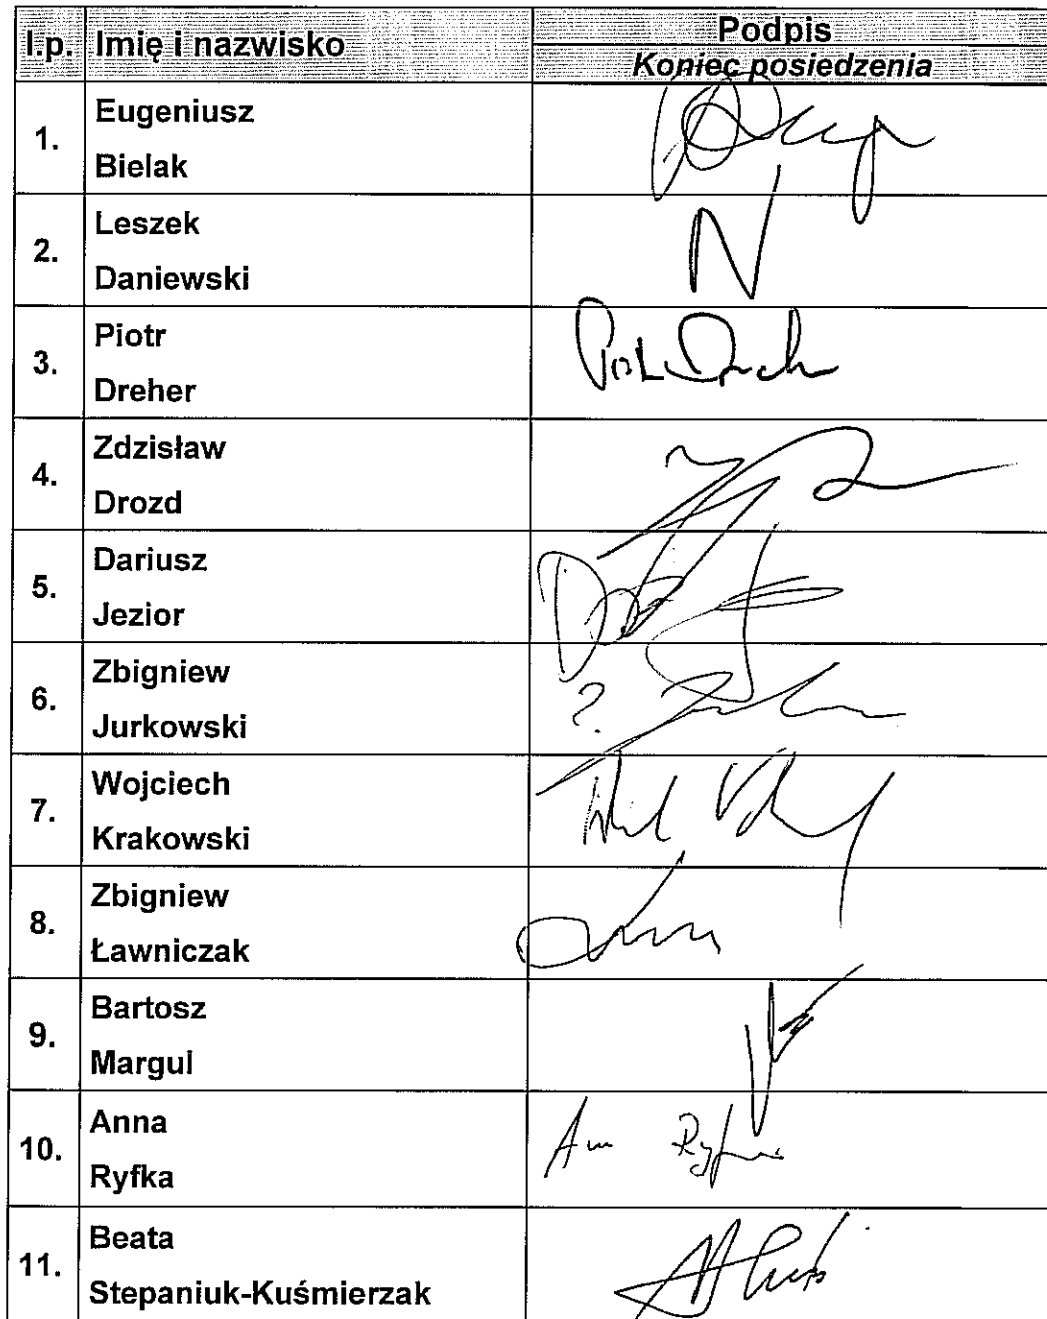 l.p. Imię i nazwisko Podpis
Koniec posiedzenia
1. Eugeniusz
Bielak
2. Leszek
Daniewski
3. Piotr
Dreher
4. Zdzisław
Drozd
5. Dariusz
Jezior
6. Zbigniew
Jurkowski
7. Wojciech
Krakowski
8. Zbigniew
Ławniczak
9. Bartosz
Margul
10. Anna
Ryfka
11. Beata
Stepaniuk-Kuśmierzak